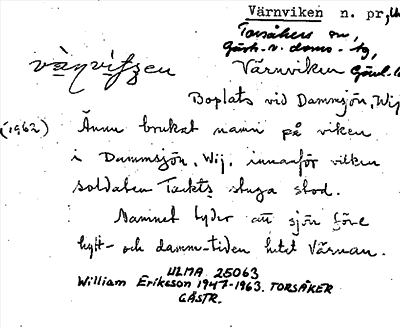 Värnviken n. pr.,
Torsåkers sn,
Gästr. v. doms.-
Värnviken
Boplats vid Dammsjön, Wij
(1962) Ännu brukat namn på viken
i Dammsjön, Wij, innanför vilken
soldaten Täckts stuga stod.
Namnet tyder att sjön före
hytt- och damm-tiden hetat Värnan.
ULMA 25063
William Eriksson 1947-1963. TORSÅKER
GÄSTR.